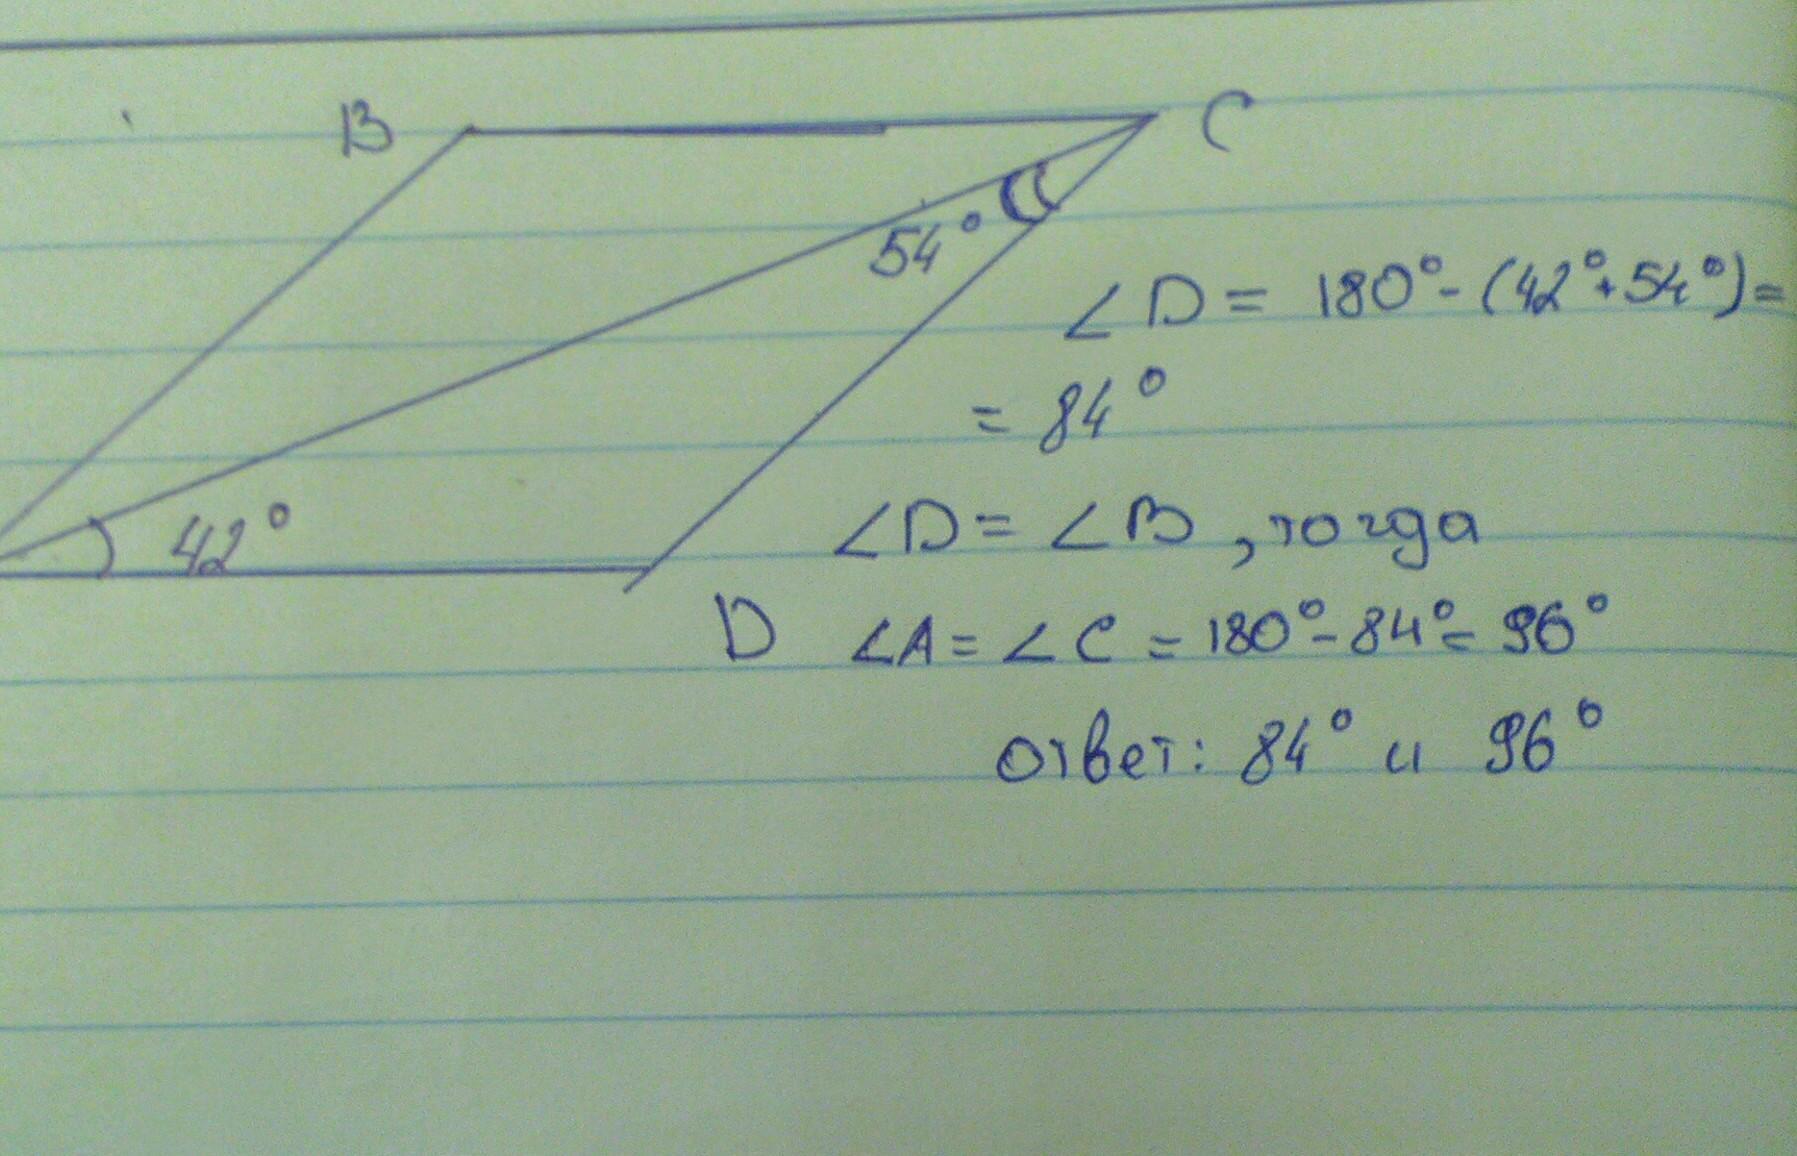 B
C
54°
∠D = 180° - (42° + 54°) =
= 84°
42°
∠D = ∠B, тогда
D
∠A = ∠C = 180° - 84° = 96°
ответ: 84° и 96°